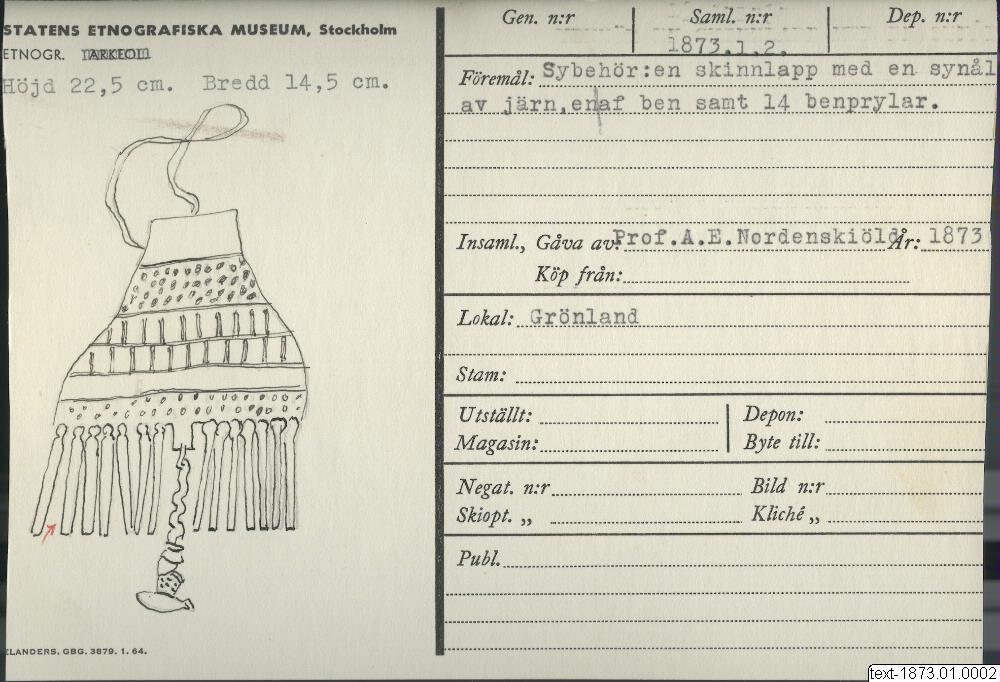 STATENS ETNOGRAFISKA MUSEUM, Stockholm
ETNOGR. ARKEOL.
Höjd 22,5 cm. Bredd 14,5 cm.
ELANDERS, GBG. 3879. 1. 64.
Gen. n:r
Saml. n:r
Dep. n:r
1873.1.2.
Föremål: Sybehör:en skinnlapp med en synål
av järn,en af ben samt 14 benprylar.
Insaml., Gåva av: Prof.A.E.Nordenskiöld År: 1873
Köp från:
Lokal: Grönland
Stam:
Utställt:
Depon:
Magasin:
Byte till:
Negat. n:r
Bild n:r
Skiopt. „
Kliché „
Publ.
text-1873.01.0002